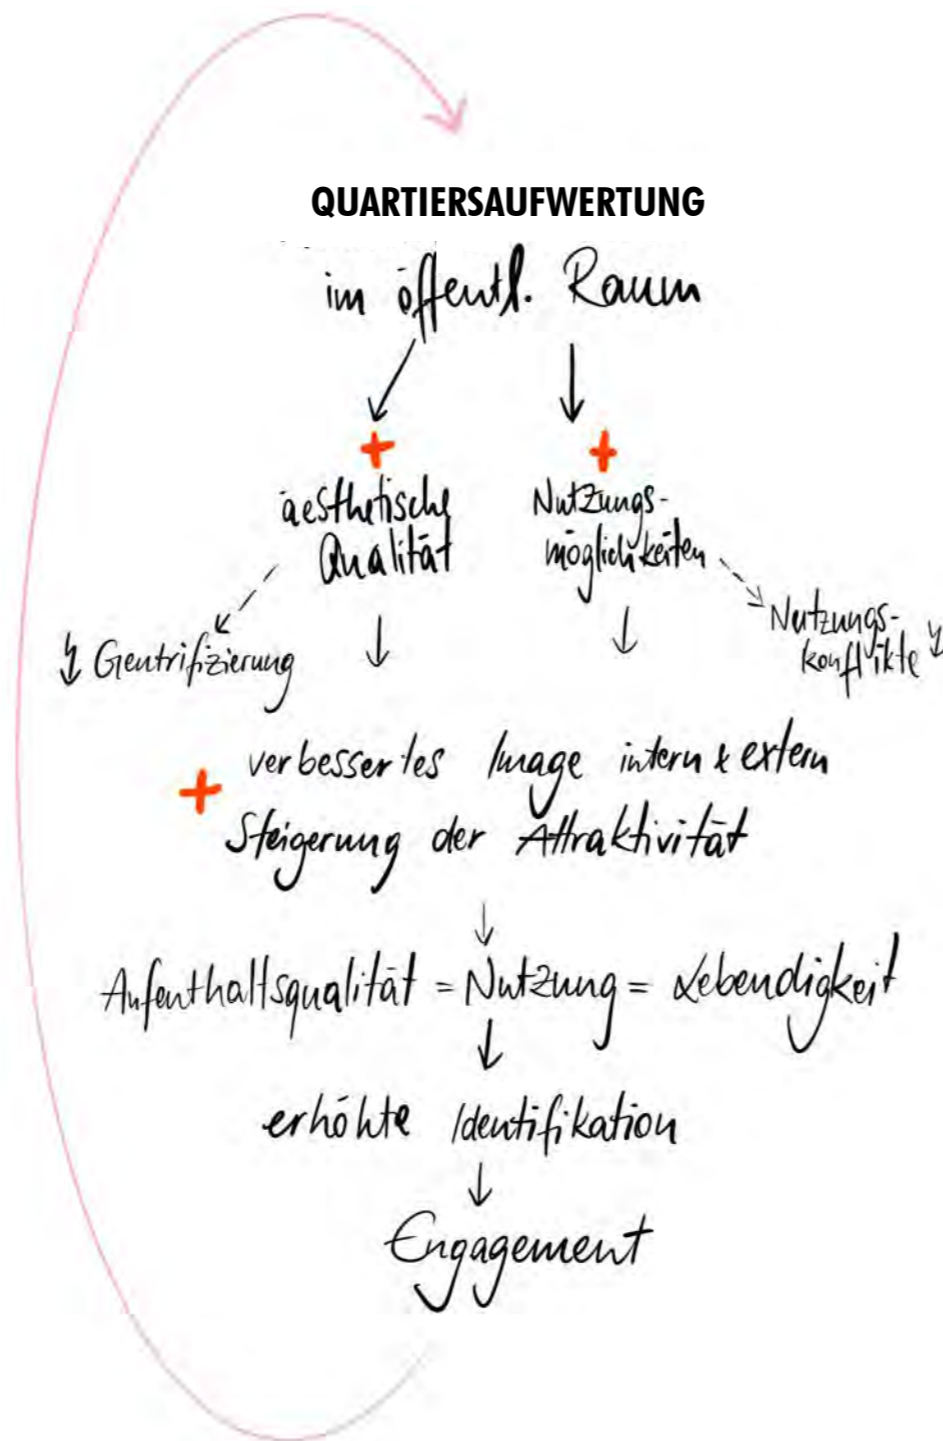 QUARTIERSAUFWERTUNG
im öffentl. Raum
+ +
äesthetische
Qualität
Nutzungs-
möglichkeiten
Gentrifizierung
Nutzungs-
konflikte
verbessertes Image intern & extern
+
Steigerung der Attraktivität
Aufenthaltsqualität = Nutzung = Lebendigkeit
erhöhte Identifikation
Engagement